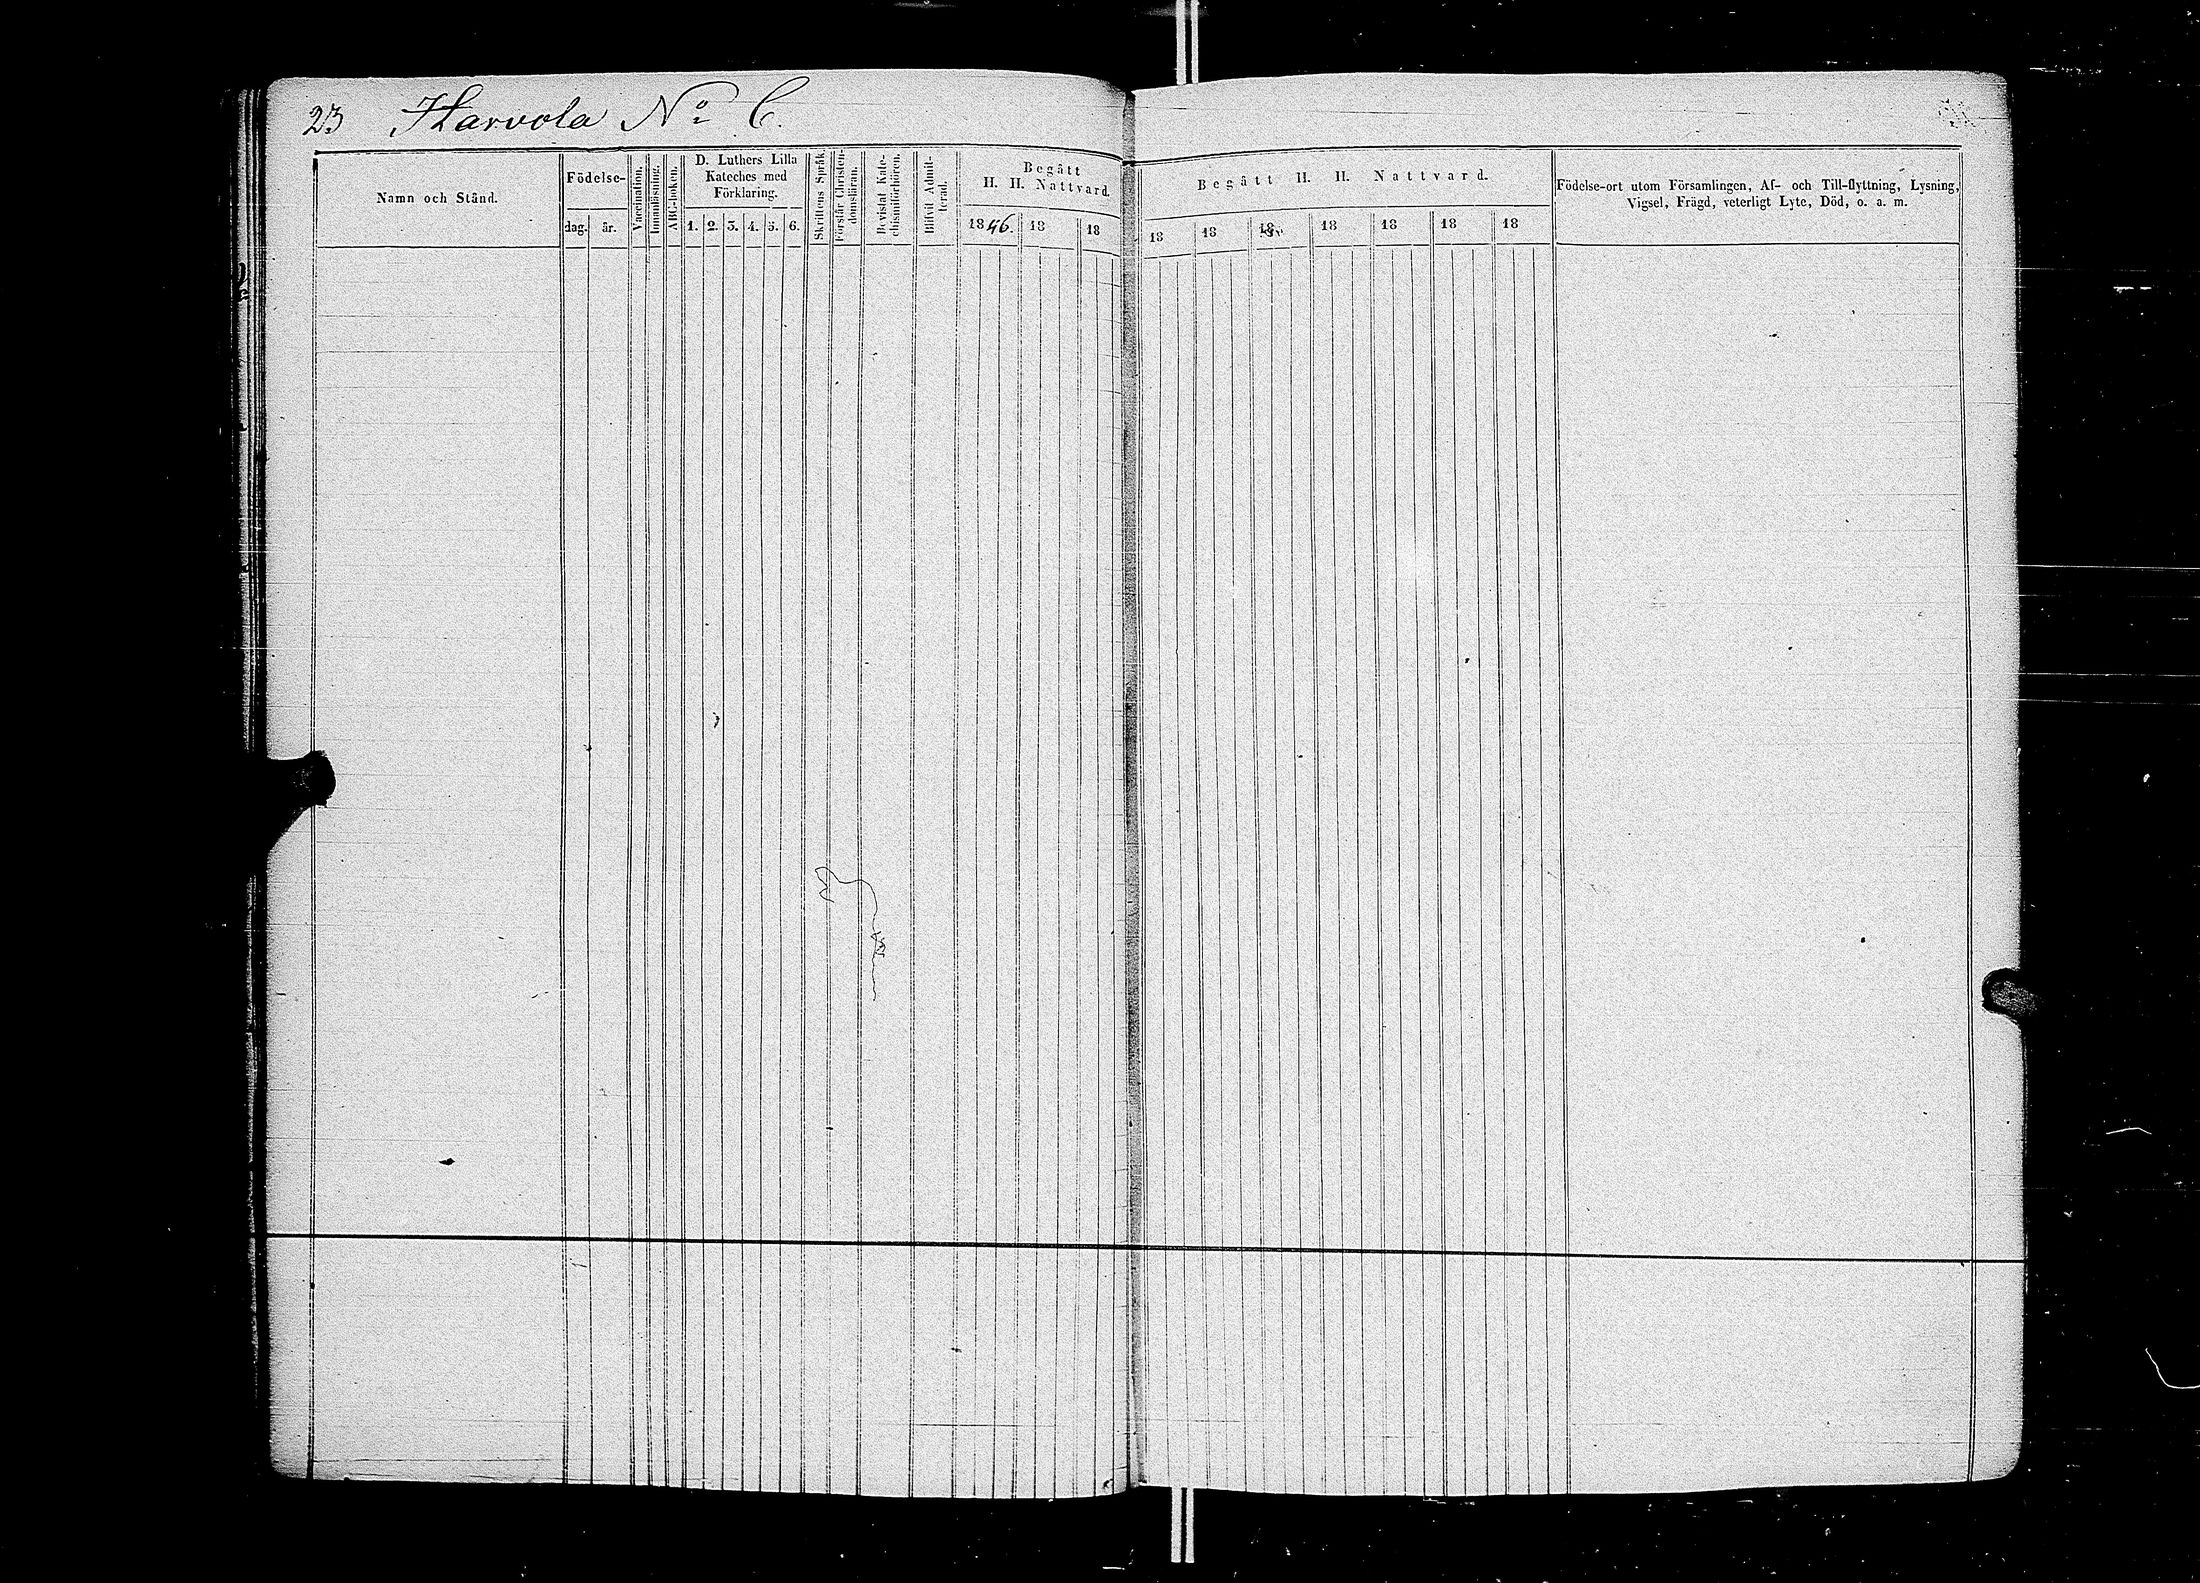 23 Harvola No 6.
Namn och Stånd.
Födelse-
dag. år.
Vaccination.
Innanläsning.
ABC-boken.
D. Luthers Lilla
Kateches med
Förklaring.
1. 2. 3. 4. 5. 6.
Skriftens Språk.
Förstår Christen-
domsläran.
Bevistat Kate-
chismiförhören.
Blifvit Admit-
terad.
Begått
H. H. Nattvard.
1846. 18 18
Begått H. H. Nattvard.
18 18 18 18 18 18 18
Födelse-ort utom Församlingen, Af- och Till-flyttning, Lysning,
Vigsel, Frägd, veterligt Lyte, Död, o. a. m.